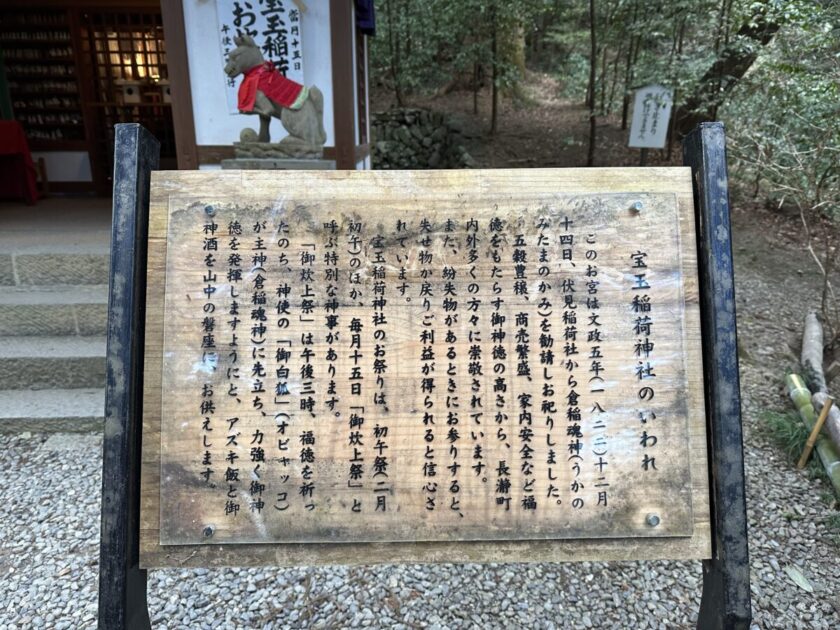 宝玉稲荷神社のいわれ
このお宮は文政五年(一八二二)十二月
十四日、伏見稲荷社から倉稲魂神(うかの
みたまのかみ)を勧請しお祀りしました。
五穀豊穣、商売繁盛、家内安全など福
徳をもたらす御神徳の高さから、長瀞町
内外多くの方々に崇敬されています。
また、紛失物があるときにお参りすると、
失せ物か戻りご利益が得られると信心さ
れています。
宝玉稲荷神社のお祭りは、初午祭(二月
初午)のほか、毎月十五日「御炊上祭」と
呼ぶ特別な神事があります。
「御炊上祭」は午後三時、福徳を祈っ
たのち、神使の「御白狐」(オビャッコ)
が主神(倉稲魂神)に先立ち、力強く御神
徳を発揮しますようにと、アズキ飯と御
神酒を山中の磐座に、お供えします。
當月十五日
宝玉稲荷